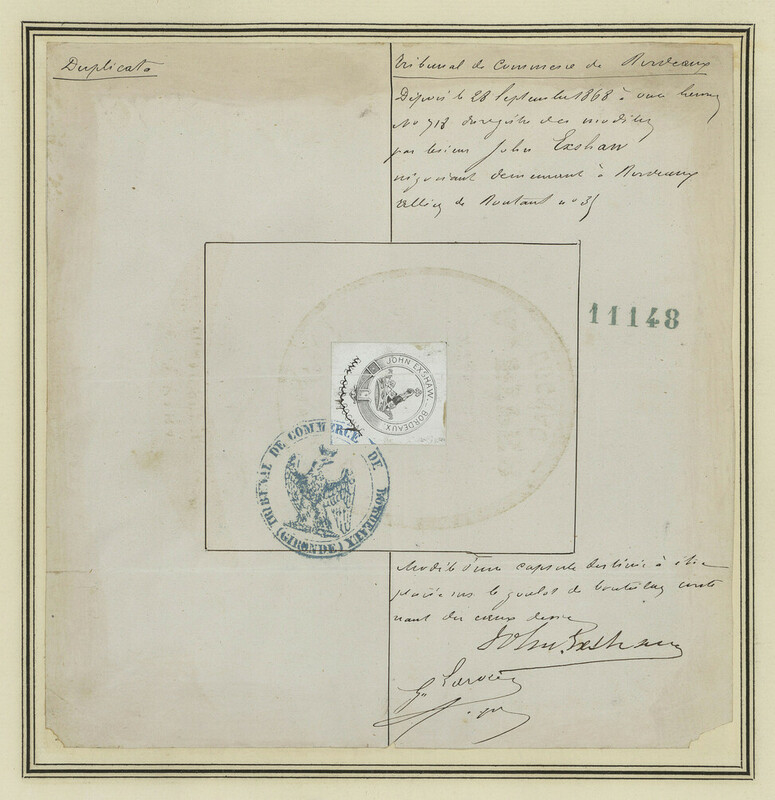 Duplicata
Tribunal de Commerce de Bordeaux
Déposé le 28 Septembre 1868 à onze heures
No 718 du registre des modèles
par le sieur John Exshaw
négociant demeurant à Bordeaux
allées de Boutaut no 31
11148
JOHN EXSHAW. BORDEAUX
TRIBUNAL DE COMMERCE DE BORDEAUX (GIRONDE)
Modèle d'une capsule destinée à être
placée sur le goulot de bouteilles conte
nant des eaux de vie
John Exshaw